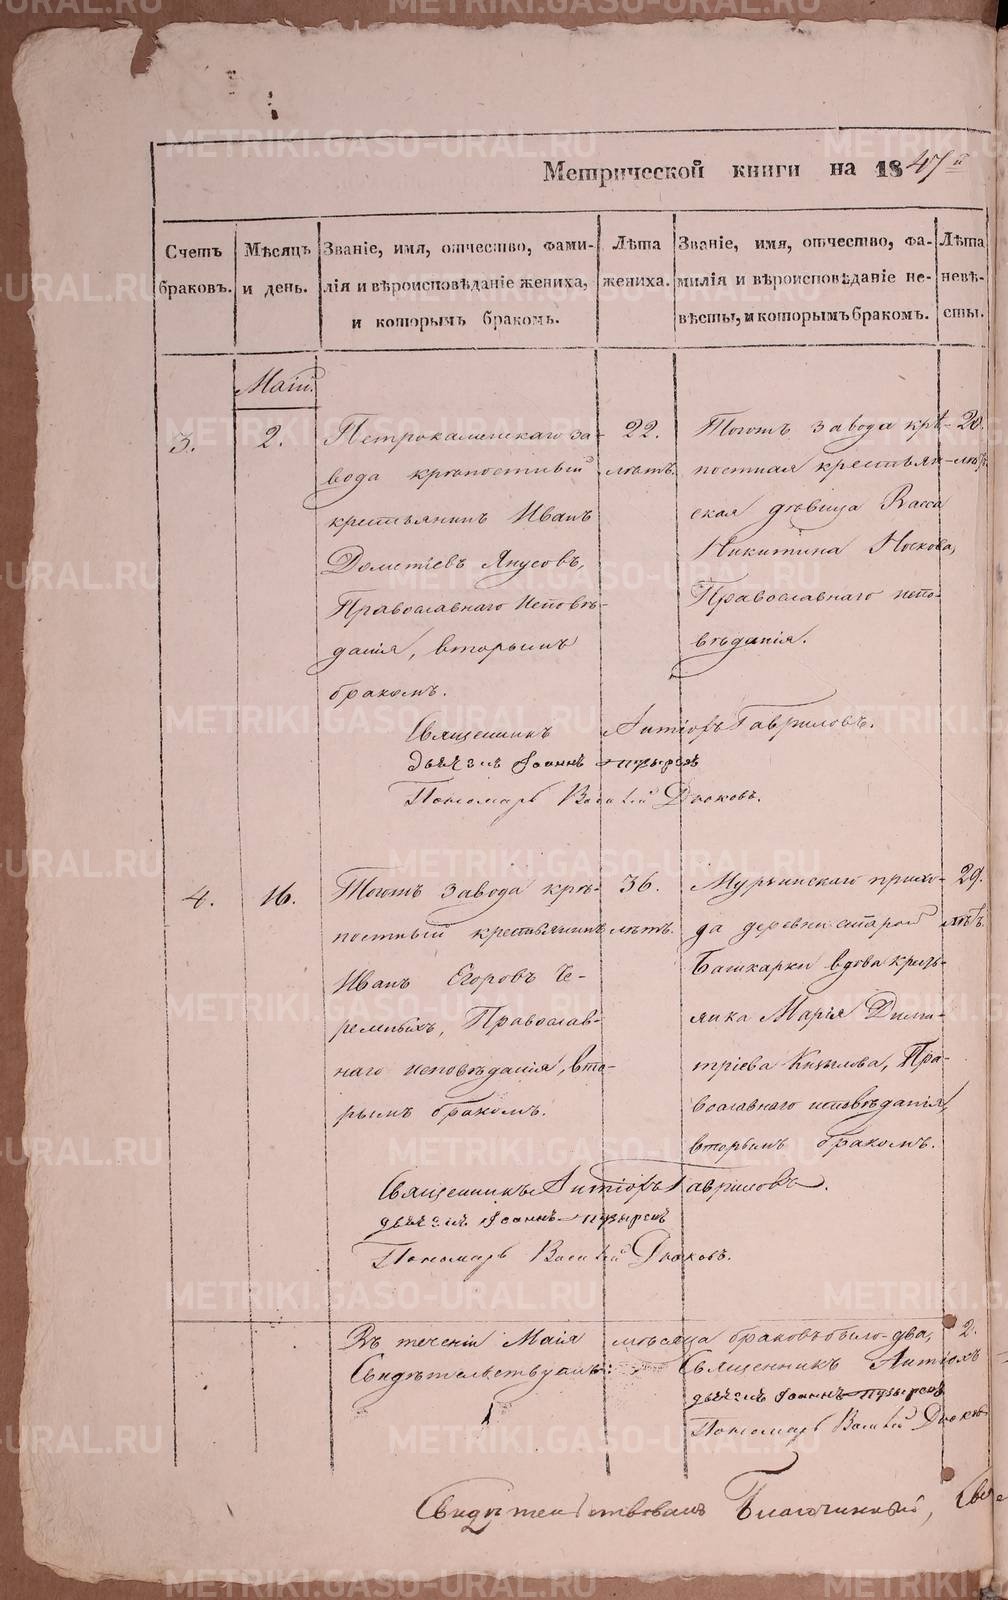 Метрической книги на 1847й
Счетъ браковъ.
Мѣсяцъ и день.
Званіе, имя, отчество, фами-
лія и вѣроисповѣданіе жениха,
и которымъ бракомъ.
Лѣта жениха.
Званіе, имя, отчество, фа-
милія и вѣроисповѣданіе не-
вѣсты, и которымъ бракомъ.
Лѣта невѣ-
сты.
Маій.
3.
2.
Петрокаменскаго за-
вода крѣпостный
крестьянинъ Иванъ
Дометіевъ Янусовъ,
Православнаго исповѣ-
данія, вторымъ
бракомъ.
22.
лѣтъ.
Тогожъ завода крѣ-
постная крестьян-
ская дѣвица Васса
Никитина Носкова,
Православнаго испо-
вѣданія.
20.
лѣтъ.
Священникъ Антіохъ Гавриловъ.
дьячекъ Іоаннъ Пузыревъ
Пономарь Василій Дюковъ.
4.
16.
Тогожъ завода крѣ-
постный крестьянинъ
Иванъ Егоровъ Че-
ремныхъ, Православ-
наго исповѣданія, вто-
рымъ бракомъ.
36.
лѣтъ.
Мурзинскаго прихо-
да деревни старой
Башкарки вдова кресть-
янка Марія Дими-
тріева Кызылова, Пра-
вославнаго исповѣданія,
вторымъ бракомъ.
29.
лѣтъ.
Священникъ Антіохъ Гавриловъ.
дьячекъ Іоаннъ Пузыревъ
Пономарь Василій Дюковъ.
Въ теченіи Маія мѣсяца браковъ было два, 2.
Свидѣтельствуемъ: Священникъ Антіохъ
дьячекъ Іоаннъ Пузыревъ
Пономарь Василій Дюковъ
Свидѣтельствовалъ Благочинный,